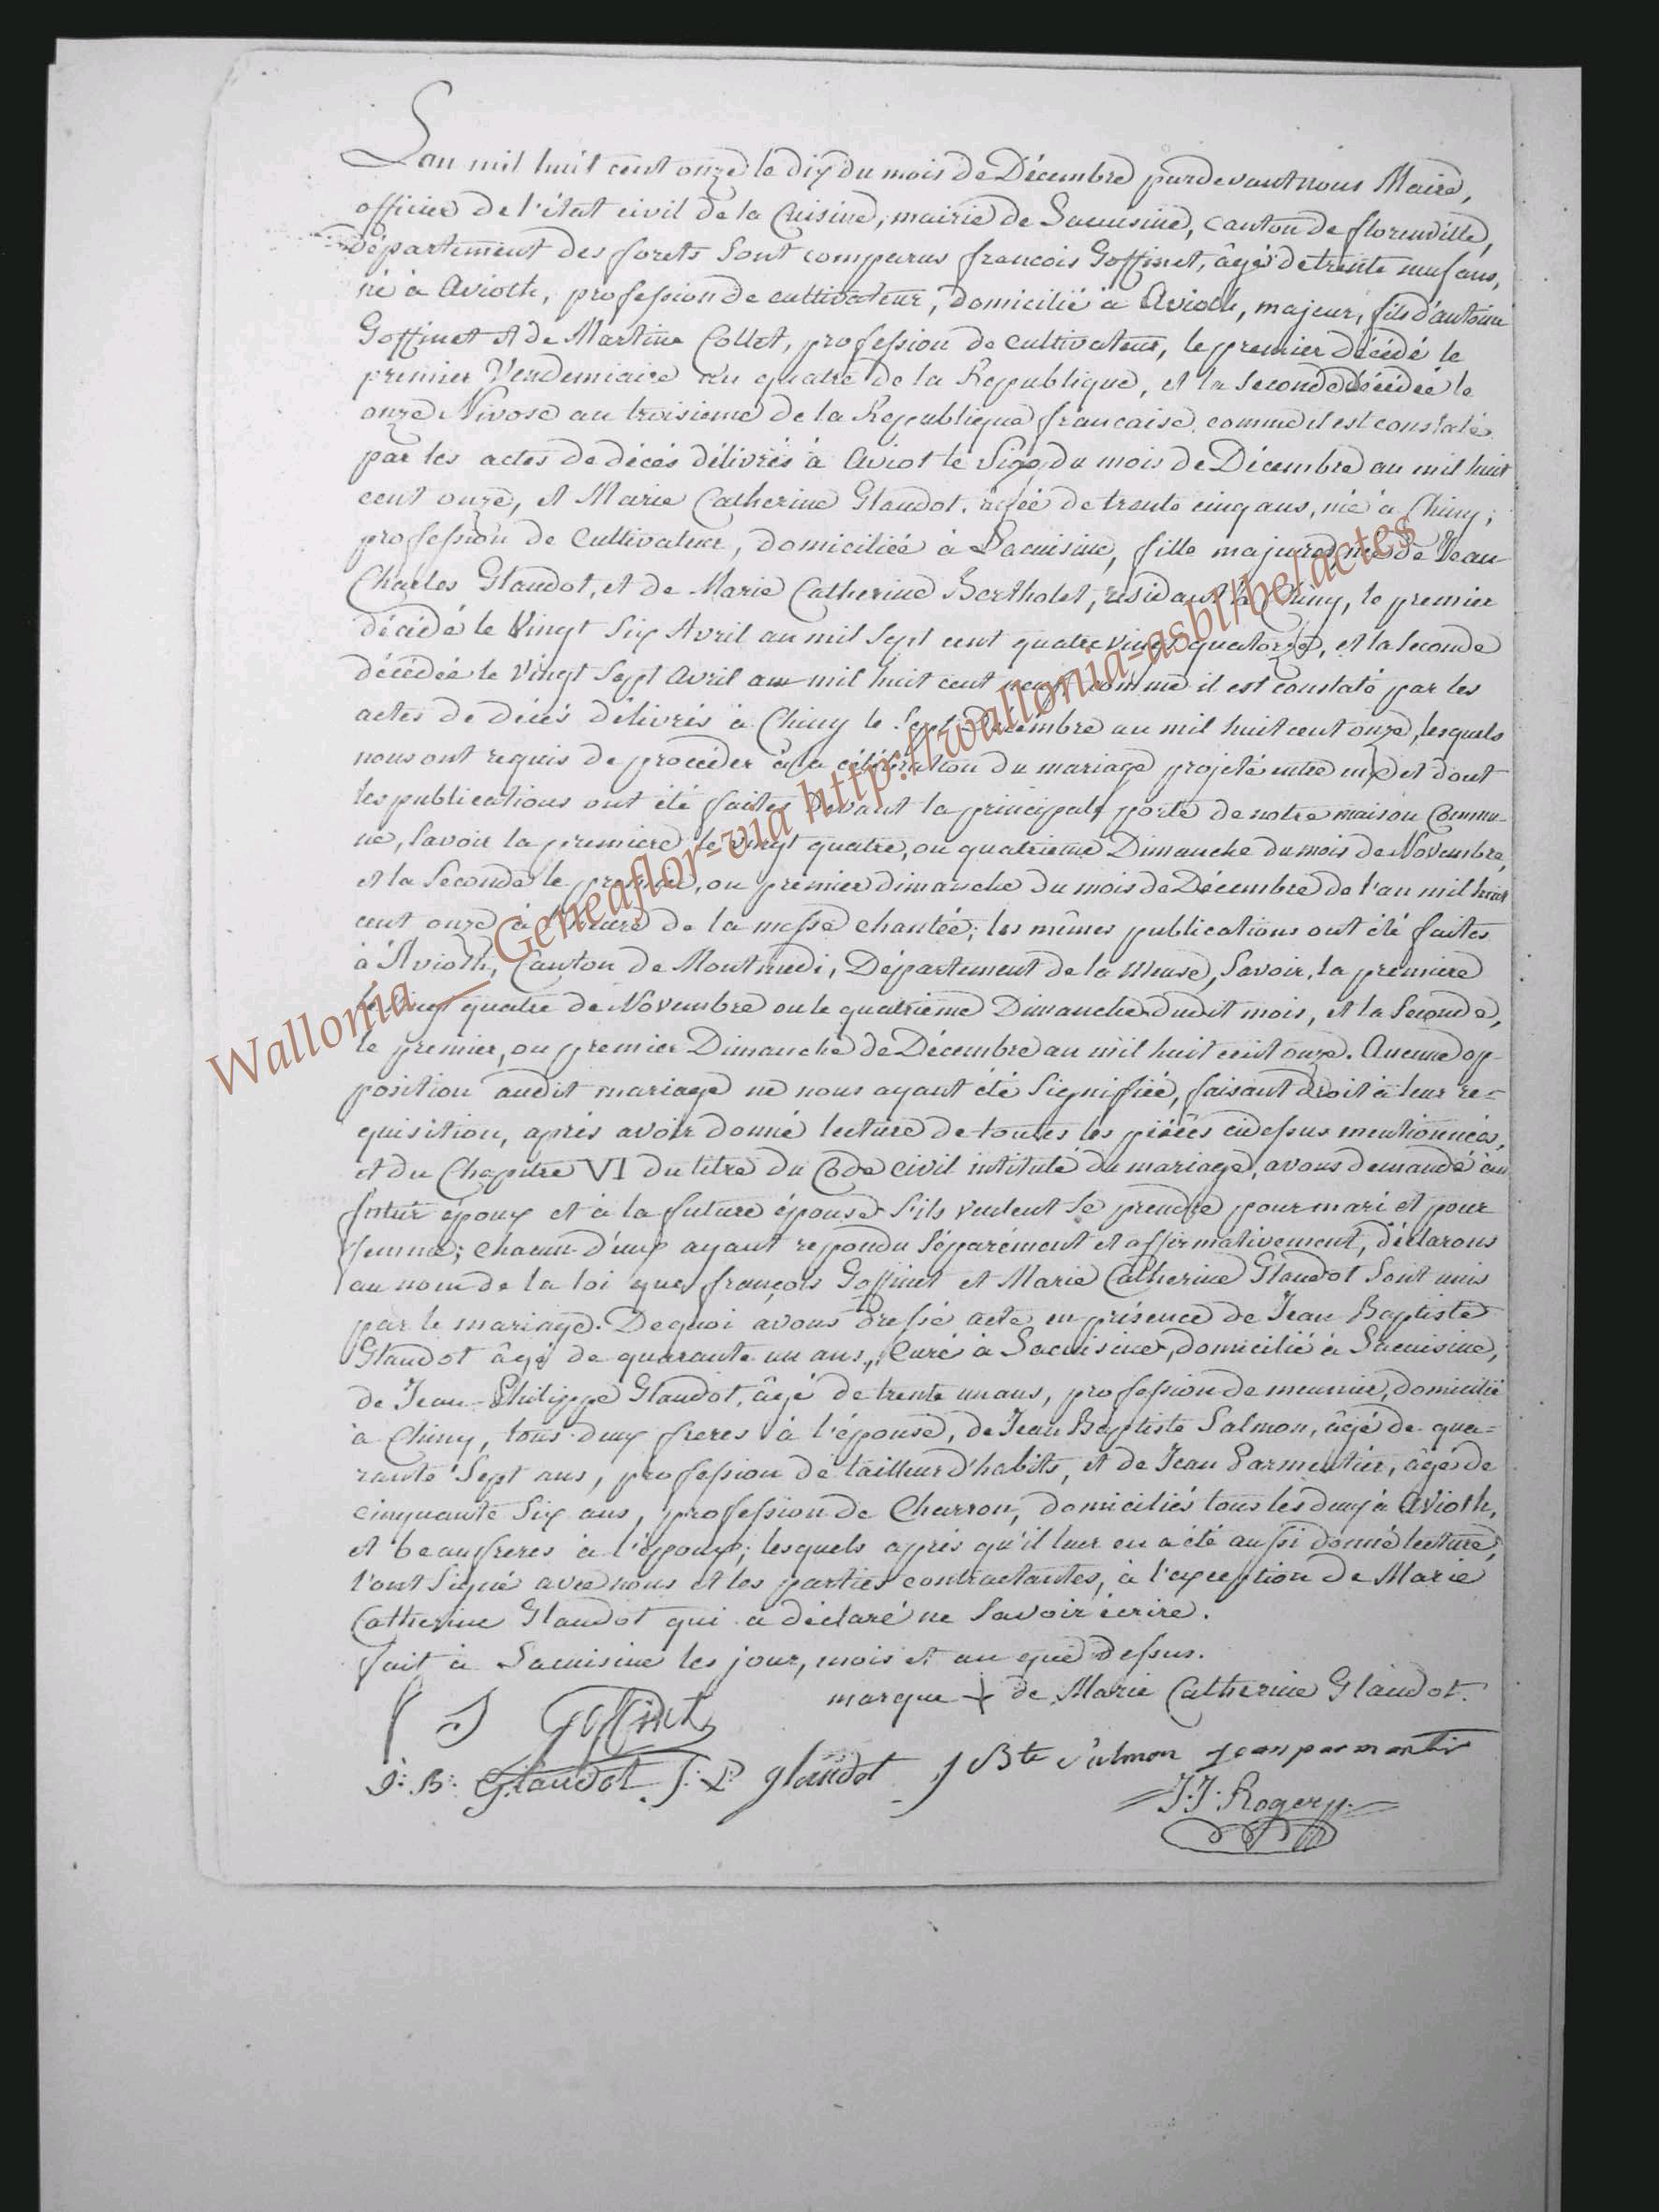 Lan mil huit cent onze le dix du mois de Décembre pardevant nous Maire,
officier de l'état civil de la Cuisine, mairie de Lacuisine, canton de florenville,
département des forets sont comparus francois Goffinet, âgé de trente neuf ans,
né à Avioth, profession de cultivateur, domicilié à Avioth, majeur, fils d'antoine
Goffinet et de Martine Collet, profession de cultivateur, le premier décédé le
premier Vendemiaire an quatre de la Republique, et la seconde décédée le
onze Nivose an troisieme de la Republique francaise, comme il est constaté
par les actes de décès délivrés à Aviot le six du mois de Décembre an mil huit
cent onze, et Marie Catherine Glaudot, agée de trente cinq ans, née à Chiny,
profession de Cultivateur, domiciliée à Lacuisine, fille majeure, née de Jean
Charles Glaudot, et de Marie Catherine Bertholet, résidant à Chiny, le premier
décédé le Vingt Six Avril an mil sept cent quatre vingt quatorze, et la seconde
décédée le Vingt Sept Avril an mil huit cent comme il est constaté par les
actes de décès délivrés à Chiny le Sept Décembre an mil huit cent onze, lesquels
nous ont requis de procéder à la célébration du mariage projeté entre eux et dont
les publications ont été faites devant la principale porte de notre maison Commu-
ne, Savoir la premiere le vingt quatre, ou quatrieme Dimanche du mois de Novembre,
et la Seconde le premier, ou premier dimanche du mois de Décembre de l'an mil huit
cent onze à l'heure de la messe chantée; les mêmes publications ont été faites
à Avioth, Canton de Montmedi, Département de la Meuse, Savoir, la premiere
le vingt quatre de Novembre ou le quatrième Dimanche dudit mois, et la Seconde,
le premier, ou premier Dimanche de Décembre an mil huit cent onze. Aucune op-
position audit mariage ne nous ayant été signifiée, faisant droit à leur re-
quisition, après avoir donné lecture de toutes les pièces ci dessus mentionnées,
et du Chapitre VI du titre du Code civil intitulé du mariage, avons demandé au
futur époux et à la future épouse s'ils veulent se prendre pour mari et pour
femme; chacun d'eux ayant repondu séparément et affirmativement, déclarons
au nom de la loi que françois Goffinet et Marie Catherine Glaudot sont unis
par le mariage. De quoi avons dressé acte en présence de Jean Baptiste
Glaudot âgé de quarante un ans, Curé à Lacuisine, domicilié à Lacuisine,
de Jean-Philippe Glaudot, âgé de trente un ans, profession de meunier, domicilié
à Chiny, tous deux freres à l'épouse, de Jean Baptiste Salmon, âgé de qua-
rante Sept ans, profession de tailleur d'habits, et de Jean Parmentier, âgé de
cinquante Six ans, profession de Charron, domiciliés tous les deux à Avioth,
et beaufreres à l'époux; lesquels après qu'il leur en a été aussi donné lecture,
l'ont signé avec nous et les parties contractantes, à l'exception de Marie
Catherine Glaudot qui a déclaré ne savoir écrire.
fait à Lacuisine les jour, mois et an que dessus.
marque + de Marie Catherine Glaudot.
Goffinet
J: B: Glaudot J: P glaudot J Bte Salmon Jean parmentier
J.J. Rogery
Wallonia — Geneaflor-via http://wallonia-asbl/be/actes